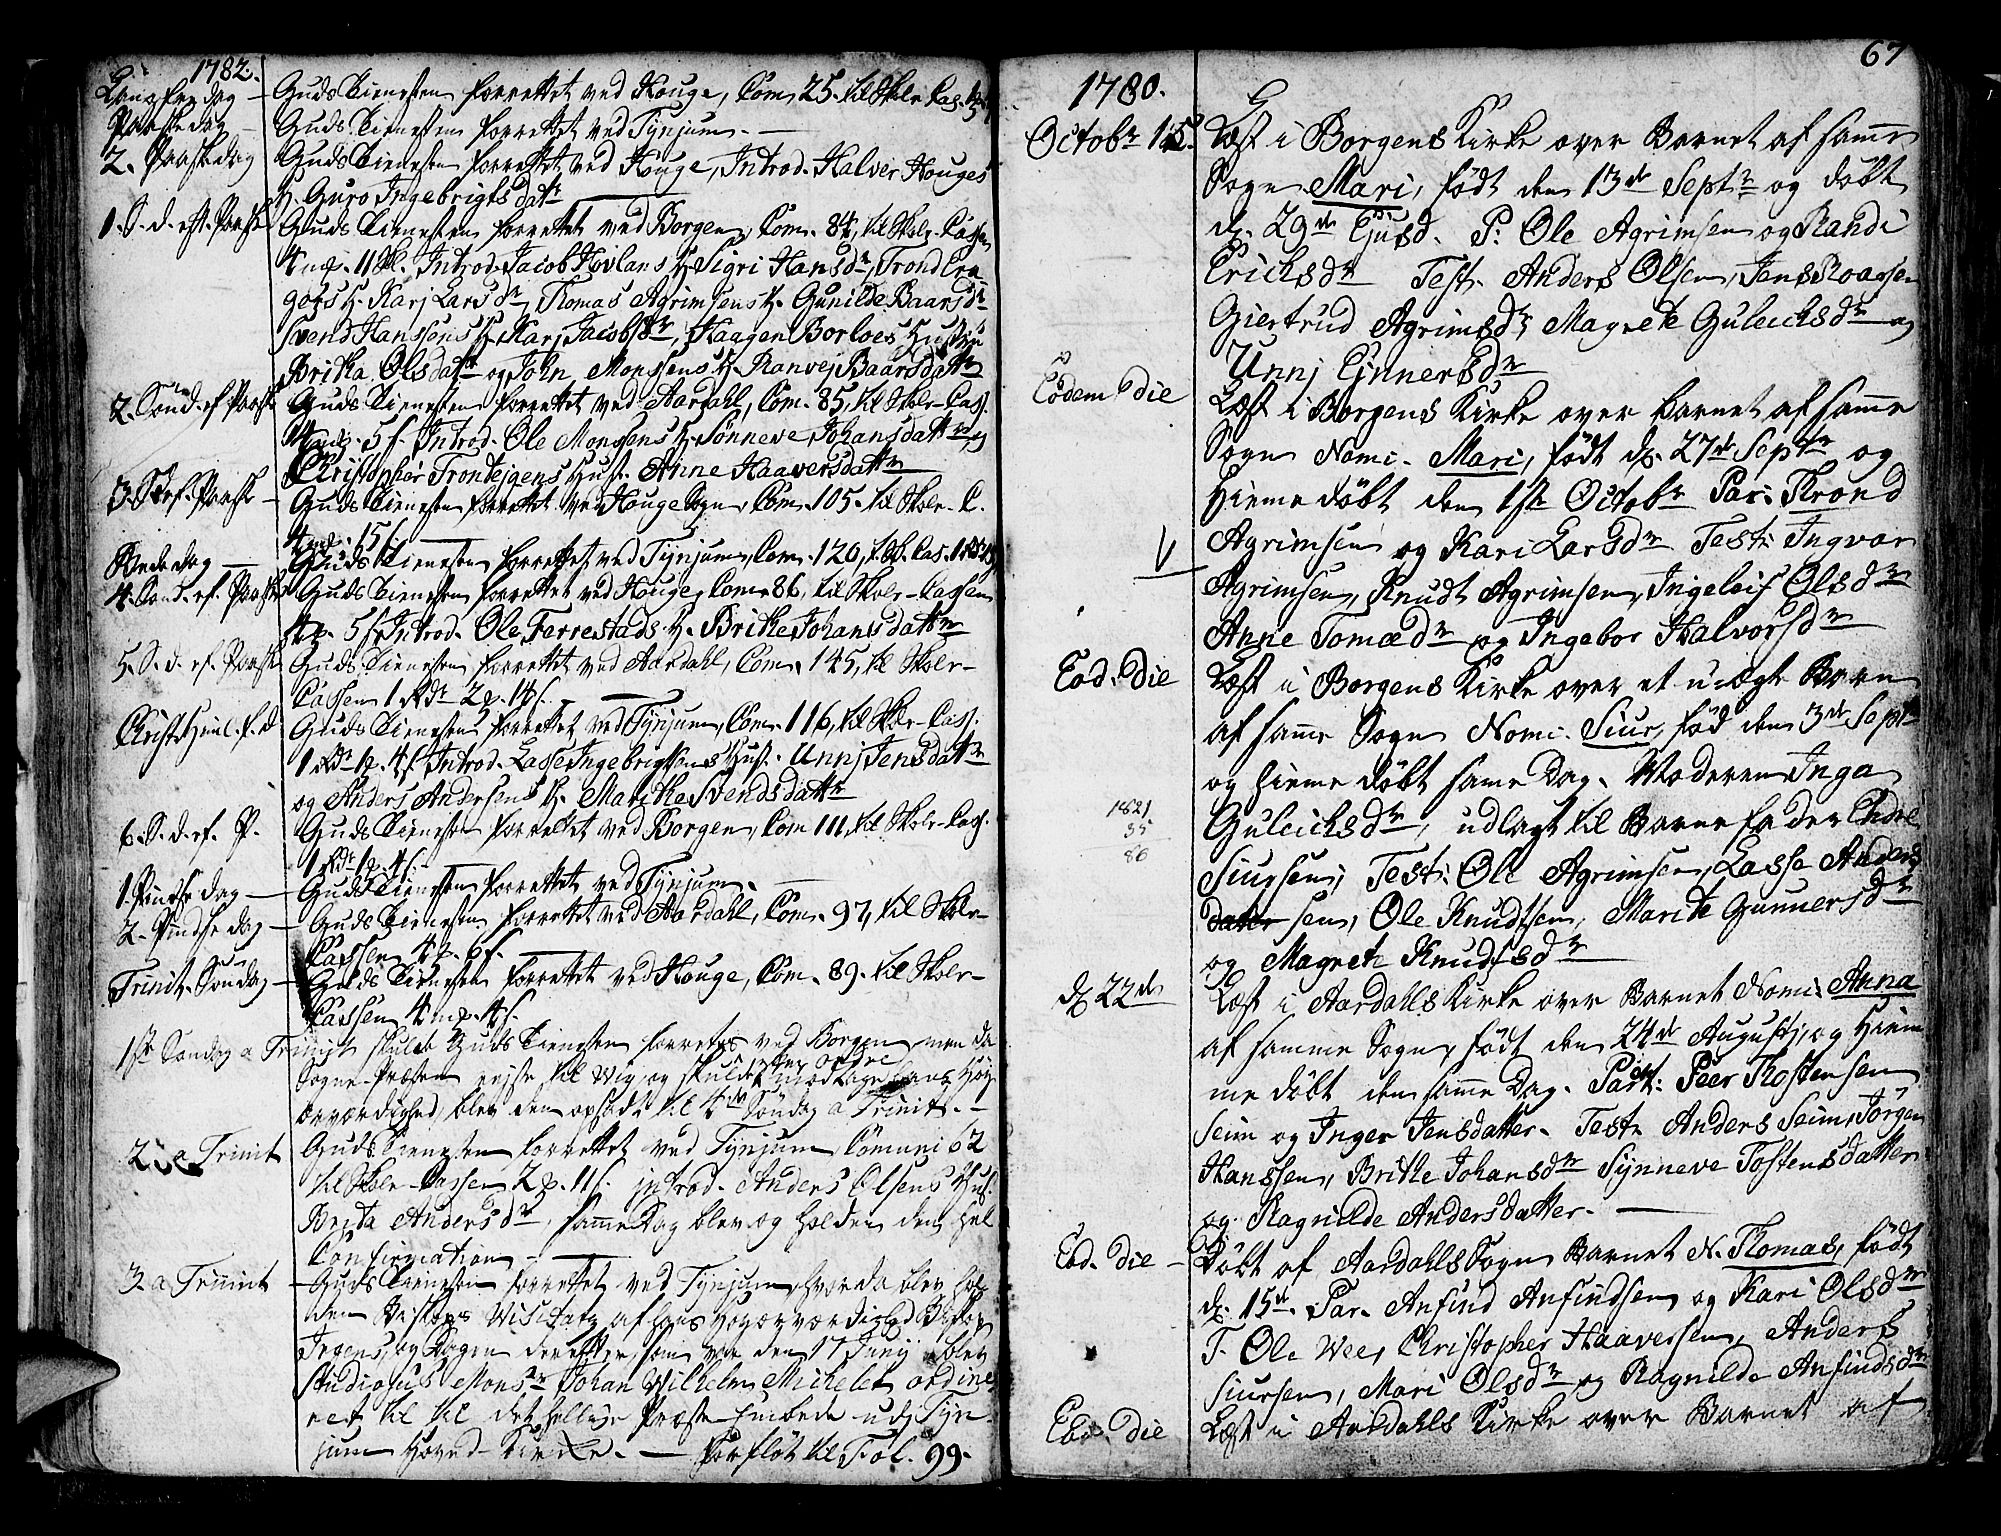 1782.
Langfredag — Guds Tienesten forrettet ved Houge, Com. 25. til Skole-Cas.
Paaskedag — Guds Tienesten forrettet ved Tynjum. —
2. Paaskedag Guds Tienesten forrettet ved Houge, Introd. Halver Houges
H. Guro Ingebrigts datr
1. S. d. eft. Paaske Guds Tienesten forrettet ved Borgen, Com. 84, til Skole-Cassen
4 mp. 11 sk. Introd. Jacob Hovlans H. Sigri Hansdr, Trond Era
goes H. Karj Larsdr, Thomas Agrimsens H. Gunilde Baarsdr
Svend Hanssens H. Karj Jacobsdr, Haagen Borloes Hustrue
Britha Olsdatr og John Monssens H. Ranvej Baarsdatr
2. Sönd. ef. Paaske Guds Tienesten forrettet ved Aardahl, Com. 85, til Skole-Cass.
4 mp. 5 s. Introd. Ole Monsens H. Sønneve Johansdattr og
Christopher Trontejgens Hust. Anne Haaversdattr
3. S. ef. Paaske — Guds Tienesten forrettet ved Houge Sogn, Com. 105. til Skole-C.
4 mp. 15 s. —
Bededag — Guds Tienesten forrettet ved Tynjum, Com. 120, t. Sk. Cas. 1 Rdr
4. Sönd. ef. Paaske Guds Tienesten forrettet ved Houge, Com. 86, til Skole-Cassen
4 p. 5 s. Introd. Ole Ferrestads H. Brithe Johansdattr
5. S. d. ef. Paaske Guds Tienesten forrettet ved Aardahl, Com. 145, til Skole-
Cassen 1 Rdr 2 p. 14 s.
Christi Himl. f. d. Guds Tienesten forrettet ved Tynjum, Com. 116, til Skole-Cass.
1 Rdr 1 p. 4 s. Introd. Lasse Ingebrigtsens Hus. Unnj Jensdatr
og Anders Andersens H. Marithe Svendsdattr
6. S. d. ef. P. Guds Tienesten forrettet ved Borgen, Com 111, til Skole-Cass.
1 Rdr 1 p. 4 s. —
1. Pindse dag — Guds Tienesten forrettet ved Tynjum. —
2. Pindse dag — Guds Tienesten forrettet ved Aardahl, Com. 97, til Skole-
Cassen 4 p. 6 s. —
Trinit. Søndag — Guds Tienesten forrettet ved Houge, Com. 89. til Skole-
Cassen 4 mp. 4 s.
1ste Søndag a Trinit skulde Guds Tienesten forrettes ved Borgen, men da
Sogne-Præsten rejste til Wig, og skulde efter ordre modtage hans Høy
ærværdighed, blev den opsadt til 4de Søndag a Trinit. —
2. a Trinit Guds Tienesten forrettet ved Tynjum, Comuni 62
til Skole-Cassen 2 p. 11 s. introd. Anders Olsens Hus.
Brita Andersdr, samme Dag blev og holden den hel
Confirmation —
3 a Trinit — Guds Tienesten forrettet ved Tynjum, hvor da blev hol
den Biskops Visitatz af hans Høyærværdighed Biskop
Irgens, og Dagen derefter som var den 17 Junij blev
Studiosus Monsr Johan Wilhelm Michelet ordine
ret til det hellige Præste-Embede udj Tyn
jum Hoved-Kirke. — Forfløt til Fol. 99.
67
1780.
Octobr 15. Læst i Borgens Kirke over Barnet af samme
Sogn Mari, født den 13de Septr og döbt
d. 29de Ejusd. P: Ole Agrimsen og Randi
Erichsdr Test. Anders Olsen, Jens Roarsen
Giertrud Agrimsdr, Magrete Guleichsdr og
Unnj Ejnnersdr
Eodem Die Læst i Borgens Kirke over barnet af samme
Sogn Nomi. Mari, født d. 27de Septr og
hieme döbt den 1ste Octobr Par: Thrond
Agrimsen og Kari Larsdr Test: Ingvar
Agrimsen, Knudt Agrimsen, Ingeleif Olsdr
Anne Tomædr og Ingebor Halvorsdr
Eod. Die Læst i Borgens Kirke over et uægte Barn
af samme Sogn Nomi. Siur, fød den 3de Septr
og hieme döbt same Dag. Moderen Inga
Guleichsdr, udlagt til Barne fader Endre
1821
35
86
Siursen, Test: Ole Agrimsen, Lasse Anders
datter sen, Ole Knudtsen, Marite Gunnersdr
og Magrete Knudsdr
d. 22de Læst i Aardalls Kirke over Barnet Nomi. Anna
af samme Sogn, født den 24de Augustj, og hiem
me döbt den samme Dag. Part: Peer Thostensen
Seim og Inger Jensdatter. Test. Anders Seim, Jörgen
Hanssen, Brithe Johansdr Synneve Tostensdatter
og Ragnilde Andersdatter. —
Eod. Die — Döbt af Aardalls Sogn Barnet N. Thomas, født
d. 15de. Par. Anfind Anfindsen og Kari Olsdr
T. Ole Wee, Christopher Haaversen, Anders
Siursen, Mari Olsdr og Ragnilde Anfindsdr
Eod. Die Læst i Aardalls Kirke over Barnet af